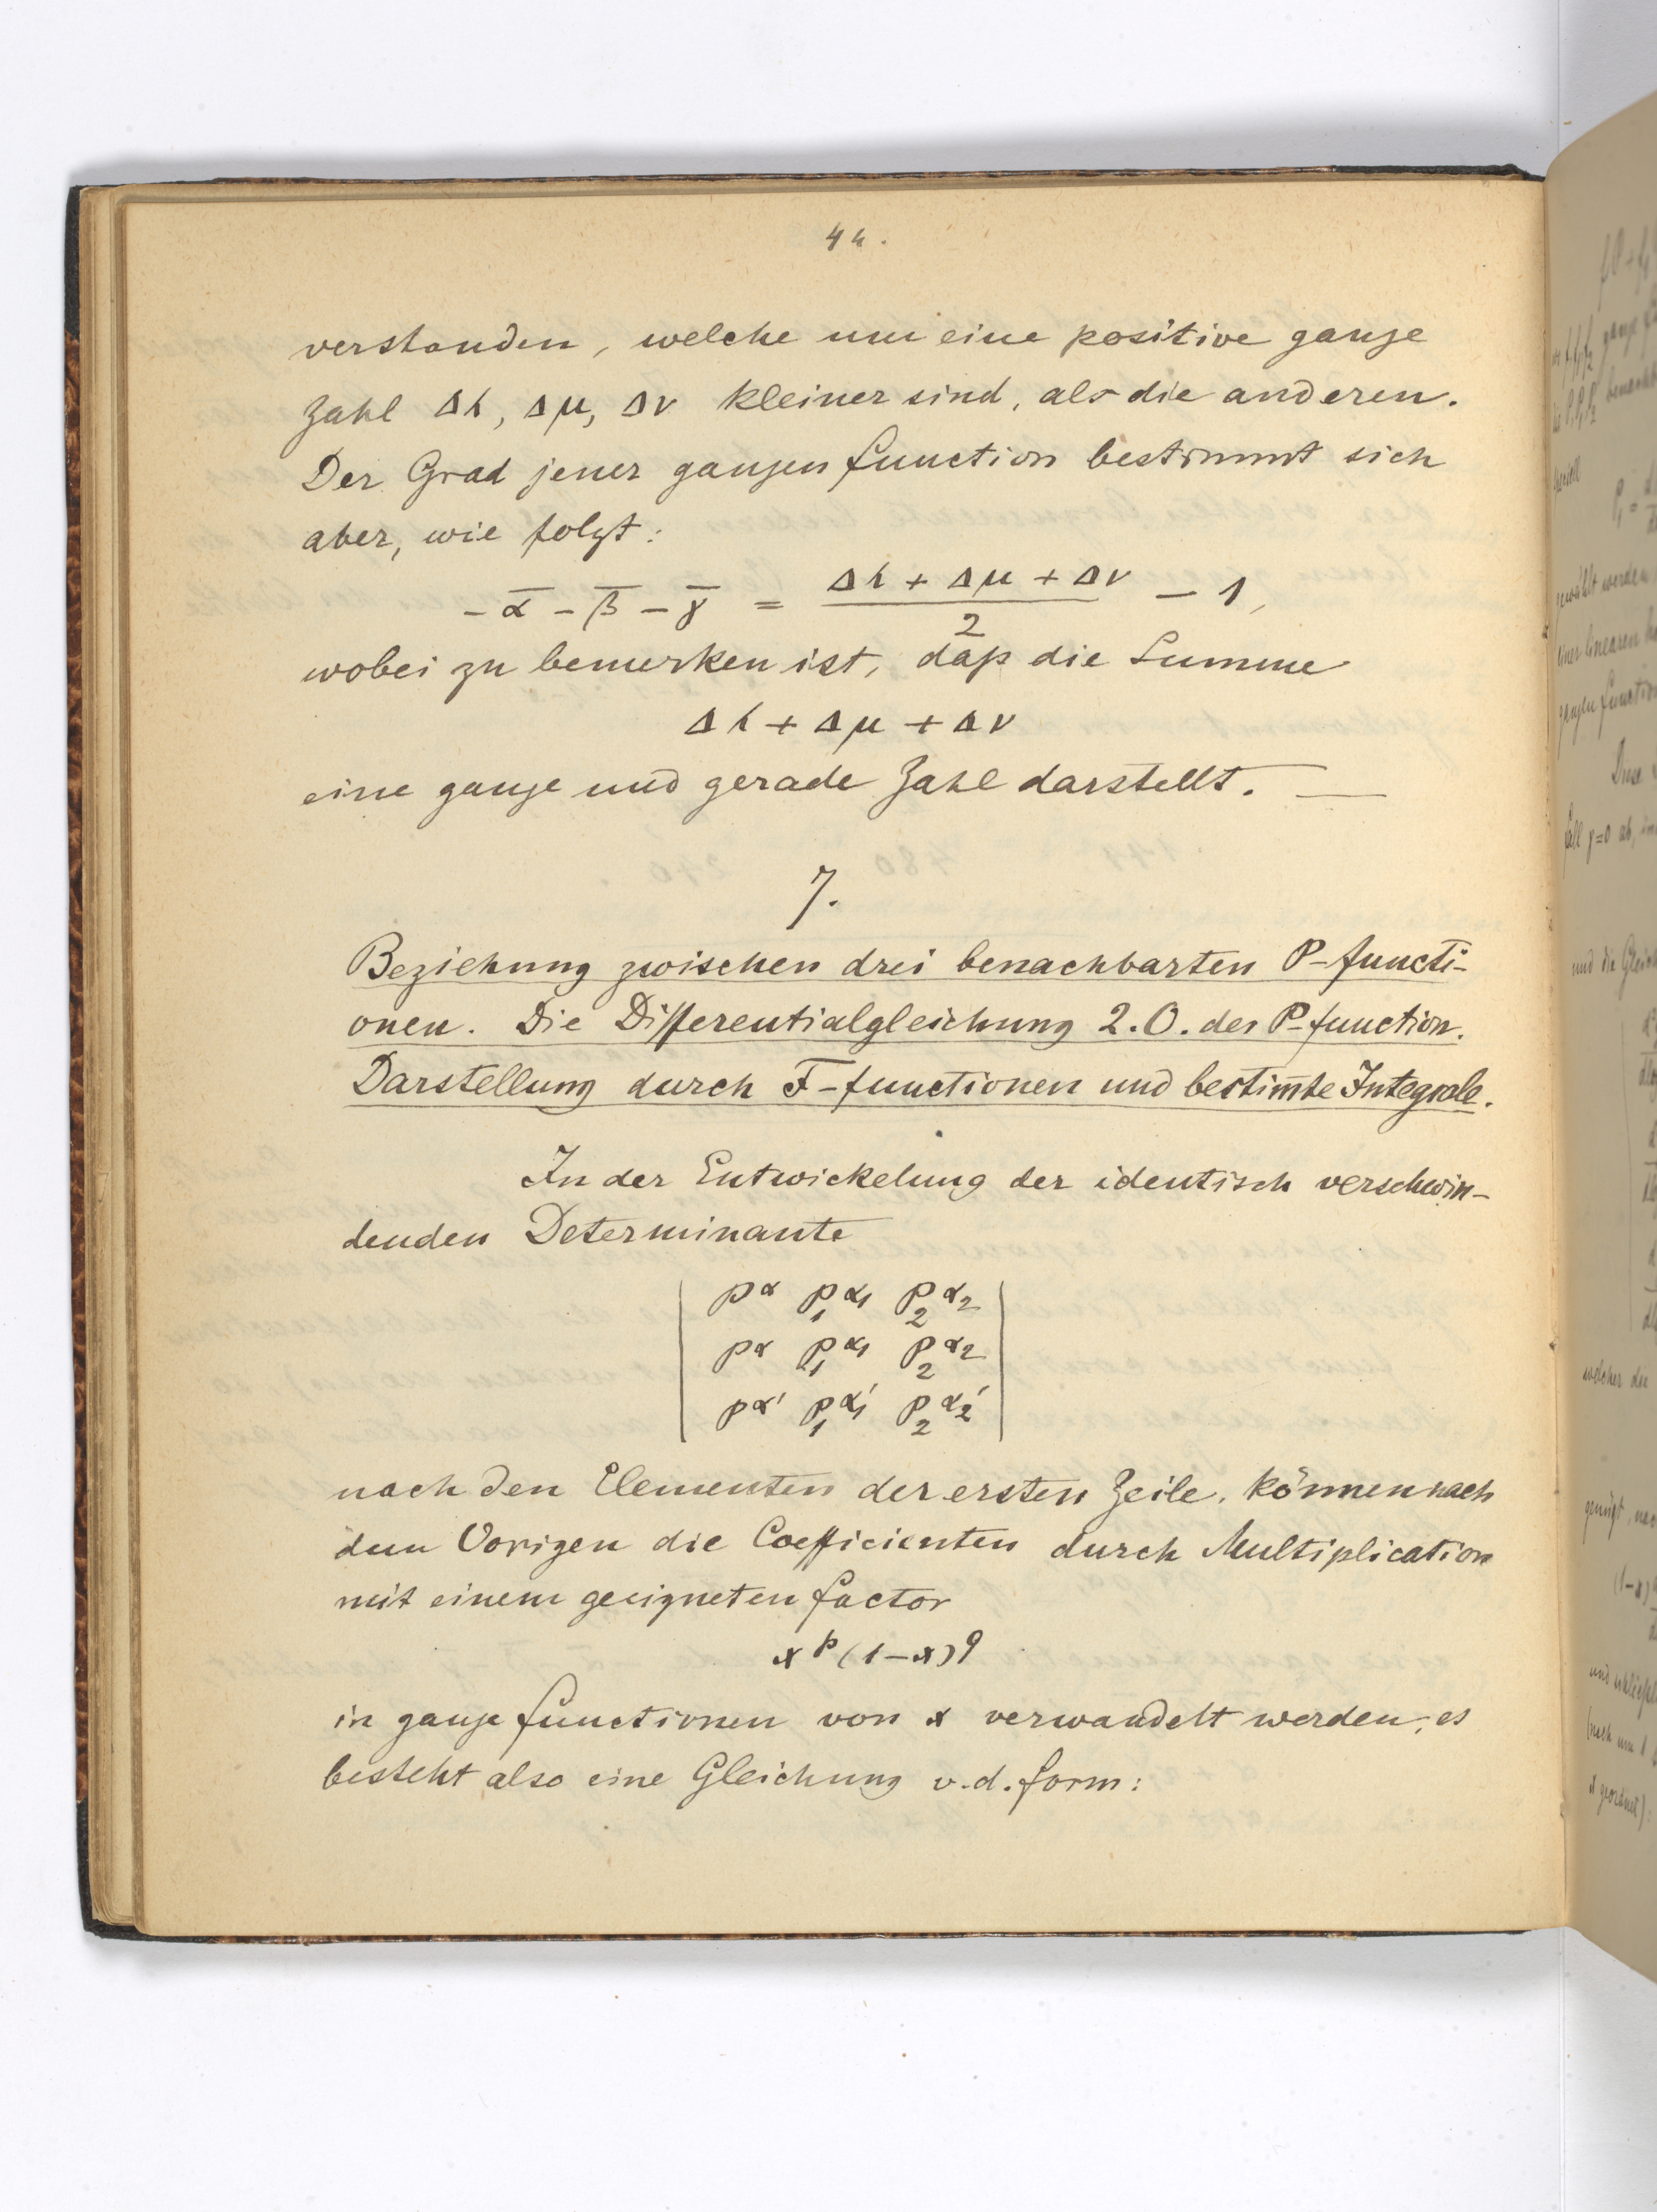 44.
verstanden, welche um eine positive ganze
Zahl Δλ, Δμ, Δν kleiner sind, als die anderen.
Der Grad jener ganzen Function bestimmt sich
aber, wie folgt:
-ᾱ - β̄ - γ̄ = (Δλ + Δμ + Δν)/2 - 1,
wobei zu bemerken ist, daß die Summe
Δλ + Δμ + Δν
eine ganze und gerade Zahl darstellt. —
7.
Beziehung zwischen drei benachbarten P-Functi-
onen. Die Differentialgleichung 2.O. der P-Function.
Darstellung durch F-Functionen und bestim̅te Integrale.
In der Entwickelung der identisch verschwin-
denden Determinante
| P^α P_1^α_1 P_2^α_2 |
| P^α P_1^α_1 P_2^α_2 |
| P^α' P_1^α_1' P_2^α_2' |
nach den Elementen der ersten Zeile, können nach
dem Vorigen die Coefficienten durch Multiplication
mit einem geeigneten Factor
x^p (1-x)^q
in ganze Functionen von x verwandelt werden; es
besteht also eine Gleichung v.d. Form: